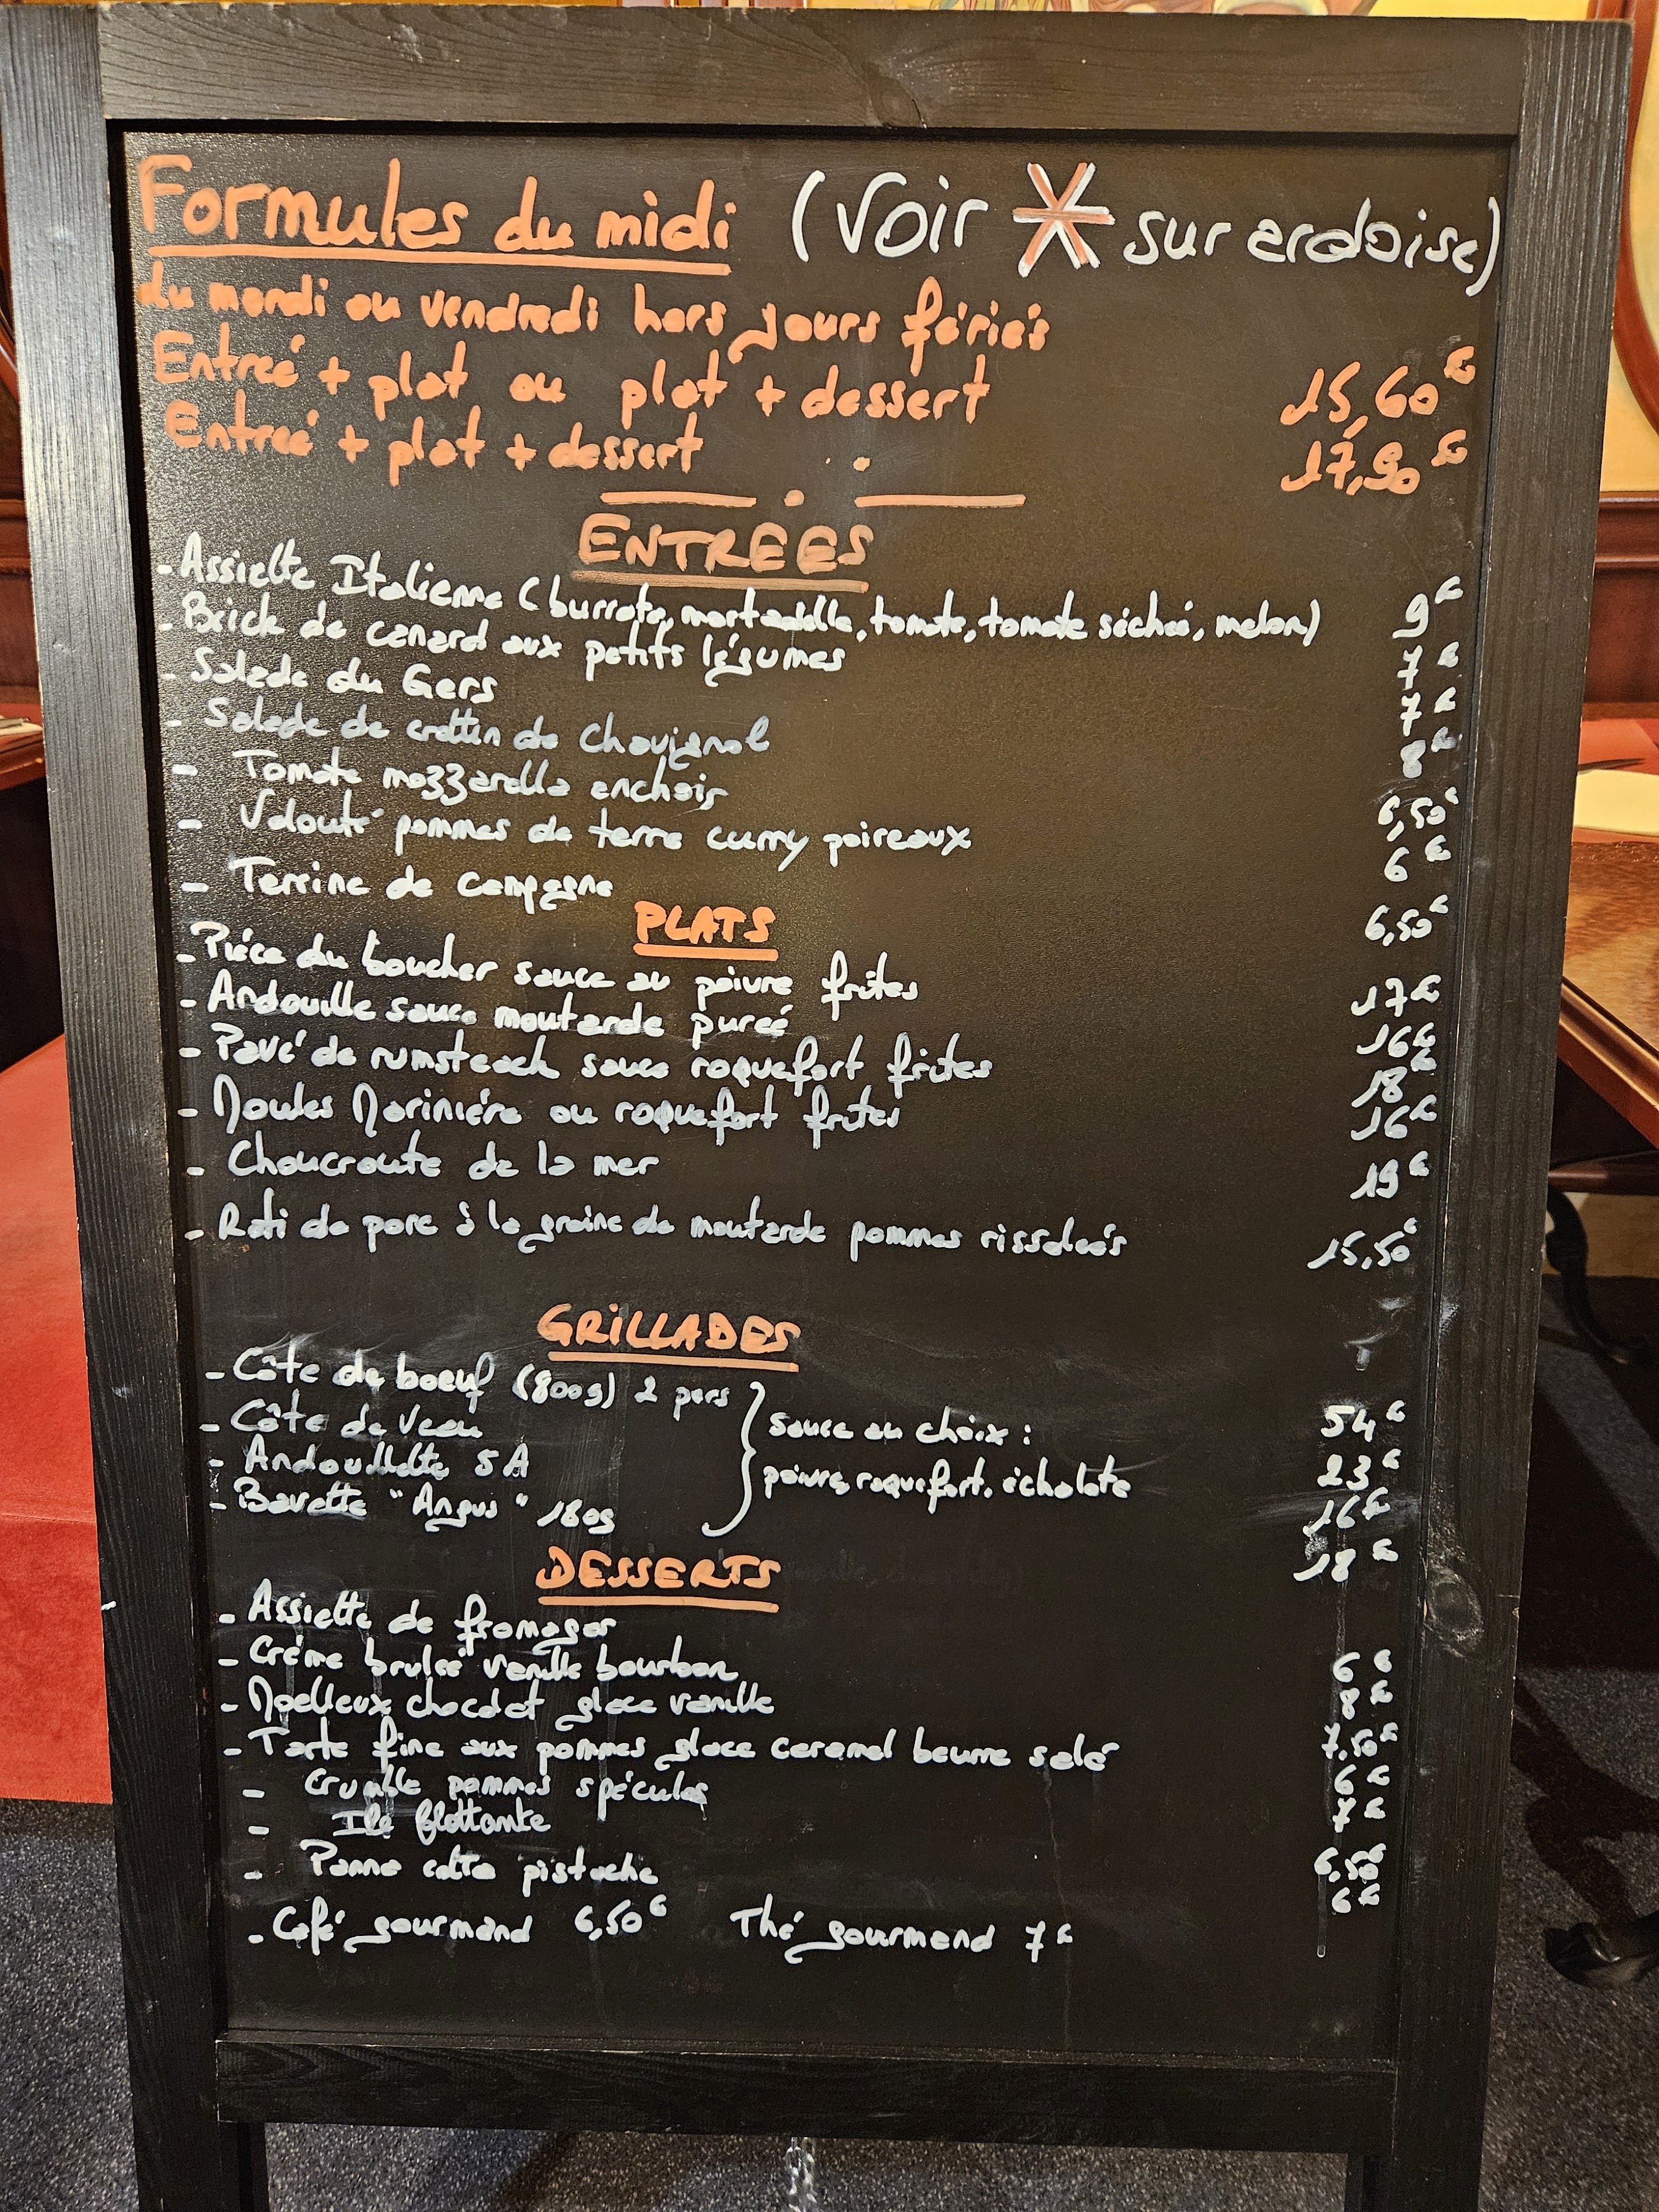 Formules du midi (Voir * sur ardoise)
du mardi au vendredi hors jours fériés
Entreé + plat ou plat + dessert 15,60€
Entreé + plat + dessert 17,90€
ENTREES
- Assiette Italienne (burrata, mortadelle, tomate, tomate séchée, melon) 9€
- Brick de canard aux petits légumes 7€
- Salade du Gers 7€
- Salade de crottin de Chavignol 8€
- Tomate mozzarella anchois 6,50€
- Velouté pommes de terre curry poireaux 6€
- Terrine de campagne 6,50€
PLATS
- Pièce du boucher sauce au poivre frites 17€
- Andouille sauce moutarde pureé 16€
- Pavé de rumsteack sauce roquefort frites 18€
- Moules Marinière ou roquefort frites 16€
- Choucroute de la mer 19€
- Roti de porc à la graine de moutarde pommes rissoleés 15,50€
GRILLADES
- Côte de boeuf (800g) 2 pers 54€
- Côte de Veau sauce au choix : 23€
- Andouillette 5A poivre, roquefort, échalote 16€
- Bavette "Angus" 180g 18€
DESSERTS
- Assiette de fromages 6€
- Crème bruleé vanille bourbon 8€
- Moelleux chocolat glace vanille 7,50€
- Tarte fine aux pommes glace caramel beurre salé 6€
- Crumble pommes spéculos 7€
- Ile flottante 6,50€
- Panna cotta pistache 6€
- Café gourmand 6,50€ Thé gourmand 7€